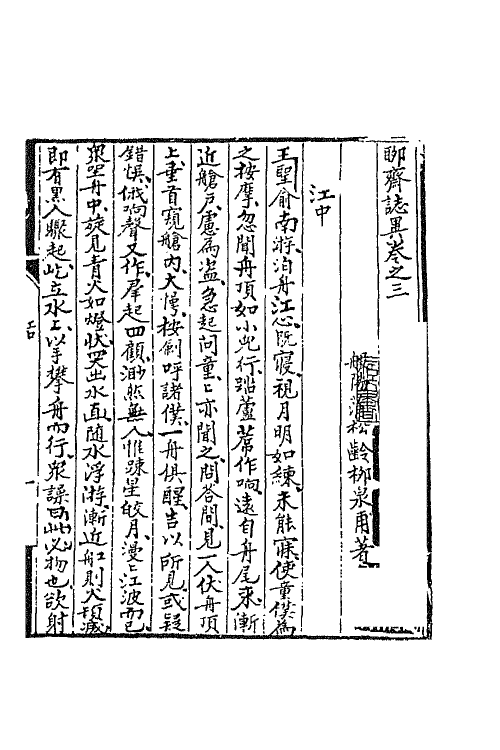 聊齋誌異卷之三
般陽蒲松齡柳泉甫著
江中
王聖俞南游泊舟江心既寢視月明如練未能寐使童僕為
之按摩忽聞舟頂如小兒行踏蘆蓆作响遠自舟尾來漸
近艙戶慮為盜急起問童〻亦聞之問答間見一人伏舟頂
上垂首窺艙內大愕按劍呼諸僕一舟俱醒告以所見或疑
錯悞俄响聲又作羣起四顧渺然無人惟踈星皎月漫〻江波而已
衆坐舟中旋見青火如燈狀突出水面随水浮游漸近舡則火頓滅
即有黑人驟起屹立水上以手攀舟而行衆譟曰此必物也欲射